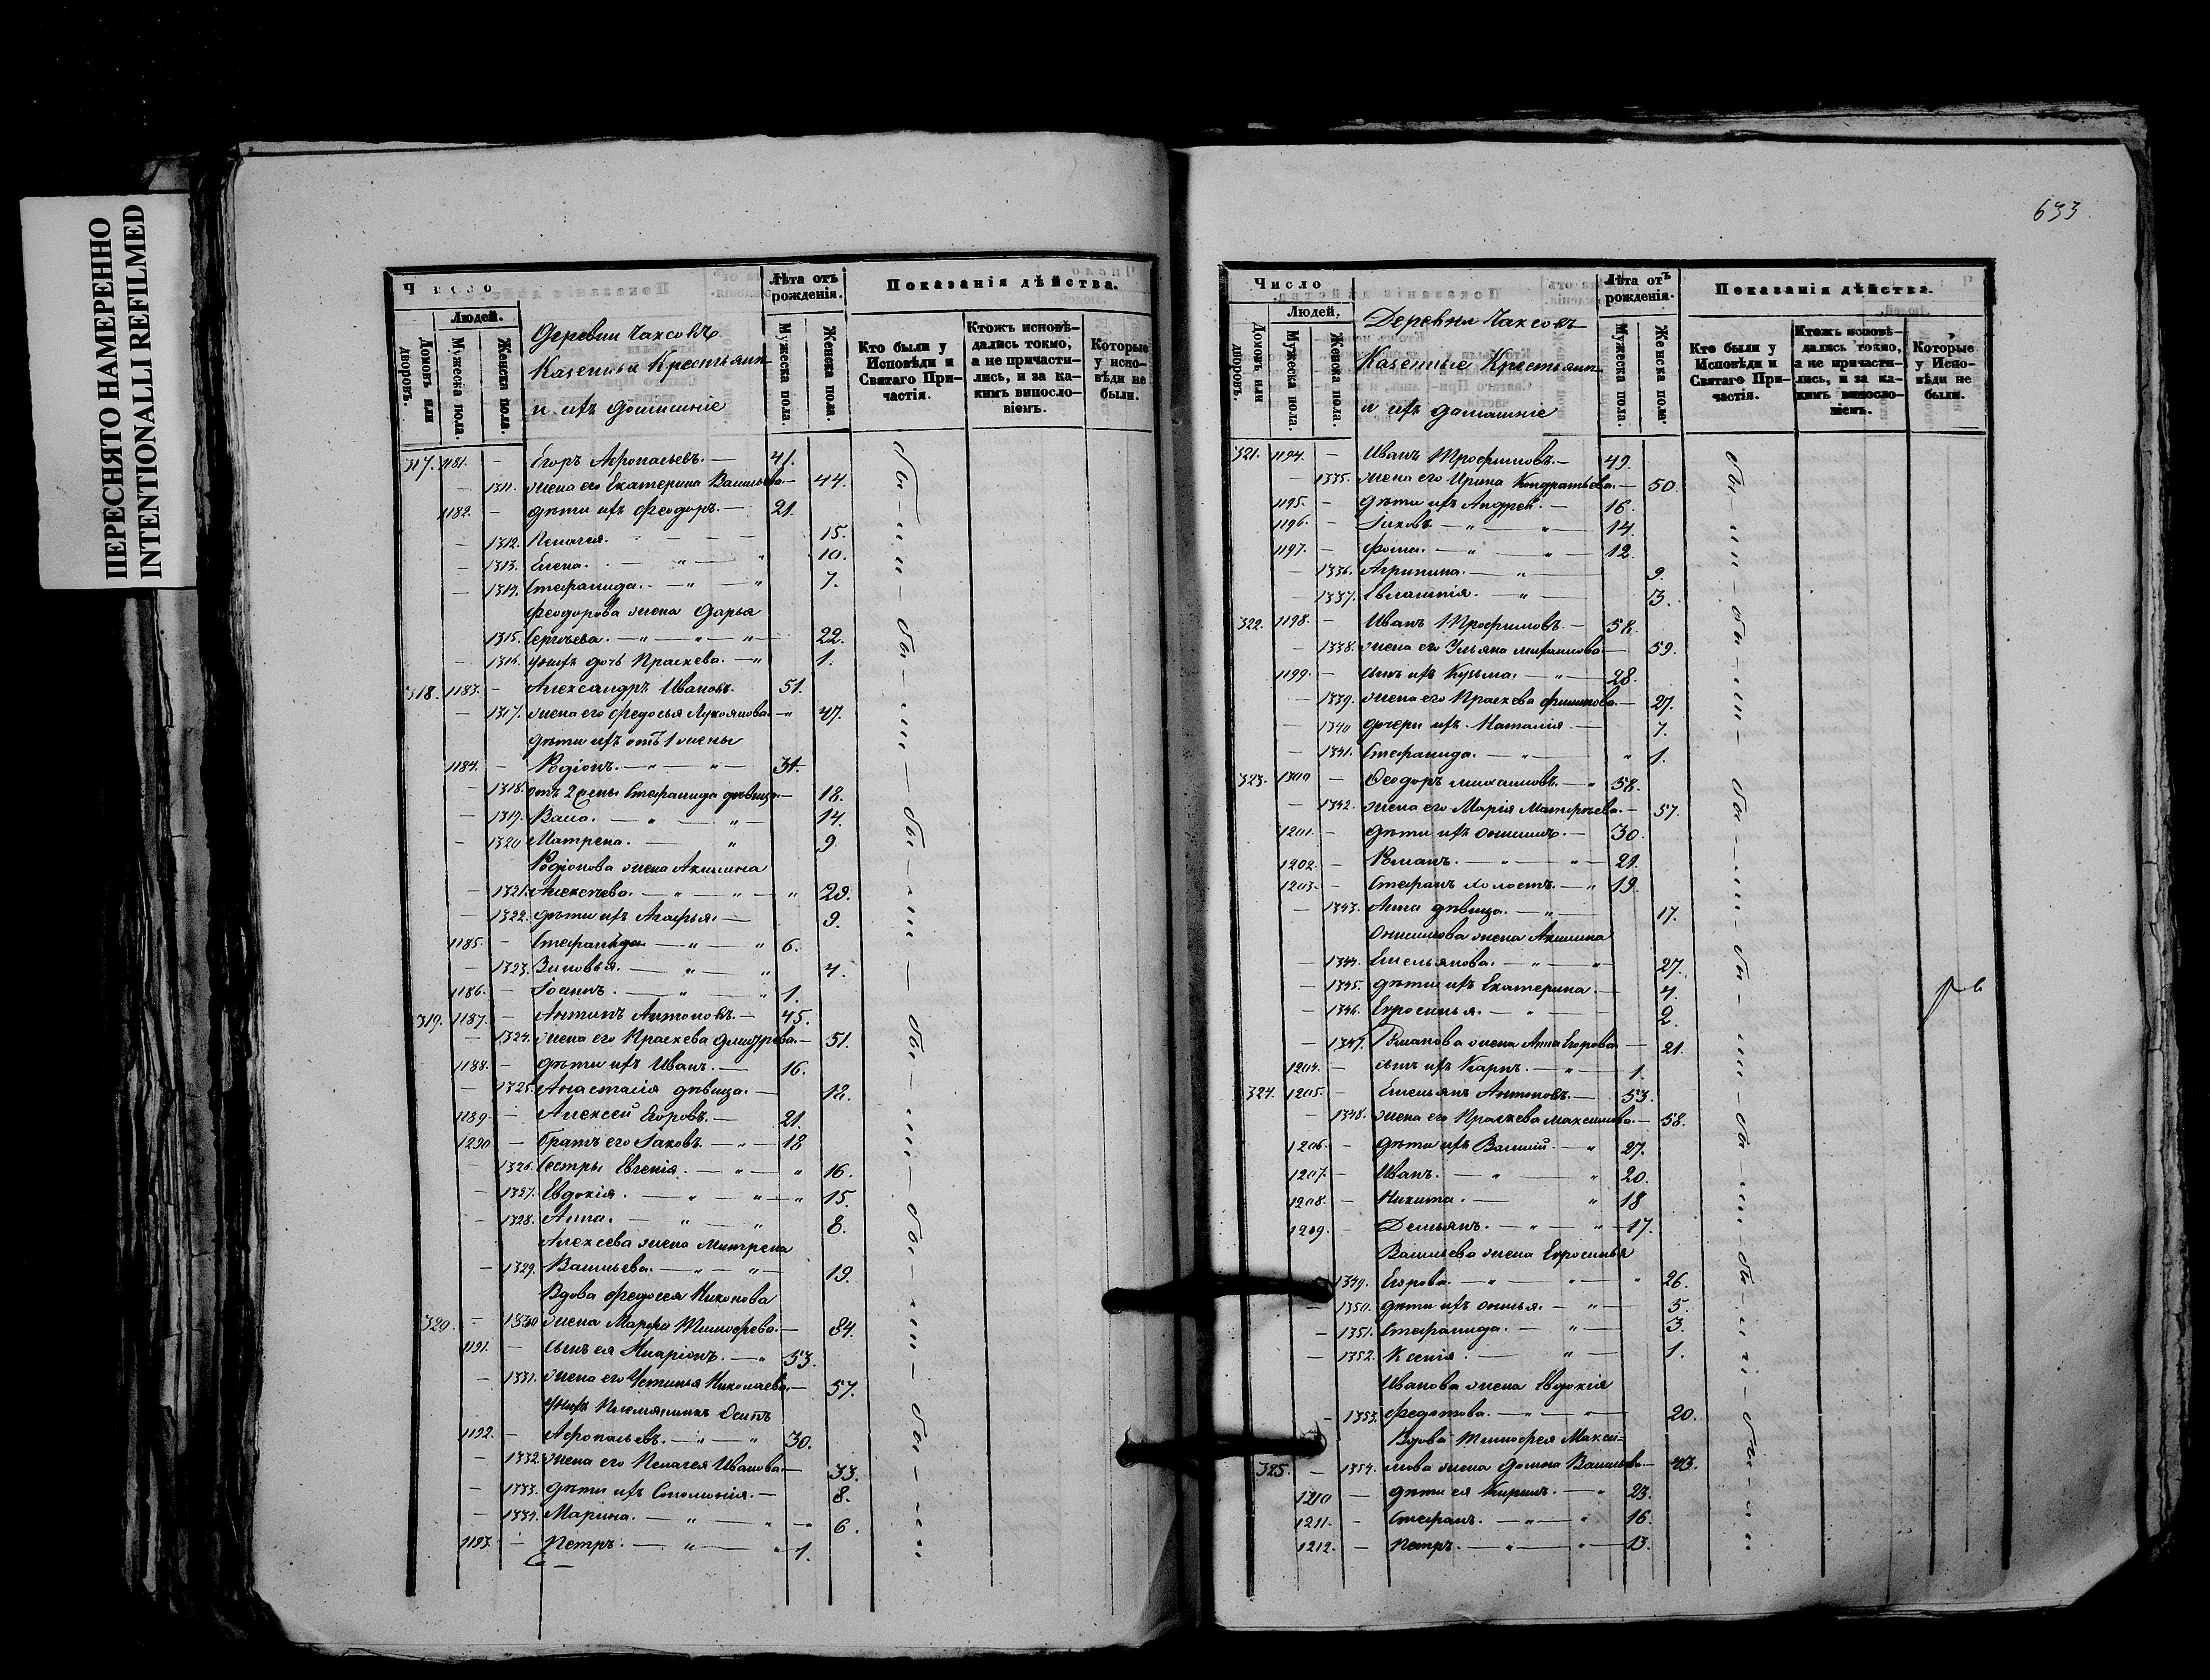 ПЕРЕСНЯТО НАМЕРЕННО
INTENTIONALLI REFILMED
Число
Людей.
Домовъ или дворовъ.
Мужеска пола.
Женска пола.
Деревни Чаксовъ
Казенные Крестьяне
и ихъ домашніе
Лѣта отъ рожденія.
Мужеска пола.
Женска пола.
Показанія дѣйства.
Кто были у Исповѣди и Святаго Причастія.
Ктожъ исповѣдались токмо, а не причастились, и за какимъ винословіемъ.
Которые у исповѣди не были.
317. 1181. — Егоръ Афонасьевъ. — 41.
— 1311. жена его Екатерина Васильева — 44.
1182. — дѣти ихъ Феодоръ. — 21.
— 1312. Пелагея. — 15.
— 1313. Елена. — " — " 10.
— 1314. Стефанида. — " — " 7.
Феодорова жена Дарья
1315. Сергѣева. — " — " — " — 22.
— 1316. у нихъ дочь Праскева. — " 1.
318. 1183. — Александръ Ивановъ. 51.
— 1317. жена его Федосья Лукоянова — " 47.
дѣти ихъ отъ 1 жены
1184. — Родіонъ. — " — " — 31.
— 1318. отъ 2 жены Стефанида дѣвица — 18.
— 1319. Васса. — " — " — 14.
— 1320 Матрена. — " 9.
Родіонова жена Акилина
— 1321. Алексѣева. — " — " — " 29.
— 1322. дѣти ихъ Агафья. — 9.
1185. — Стефанида — " — " 6.
— 1323. Зиновья. — " — " 4.
1186. — Іоаннъ. — " — " 1.
319. 1187. — Антипъ Антоновъ. — 45.
— 1324. жена его Праскева Дмитрева. — 51.
1188. — дѣти ихъ Иванъ. — 16.
— 1325. Анастасія дѣвица. — 18.
1189. — Алексей Егоровъ. — 21.
1290 — братъ его Іаковъ. — " — 18
1326. Сестры Евгенія. — " — " 16.
— 1327. Евдокія. — " — " — " 15.
— 1328. Анна. — " — " 8.
Алексева жена Митрена
— 1329. Васильева. — " — " — 19.
Вдова Федосея Никонова
320. — 1330 жена Марфа Тимофева. — 84.
1191. — сынъ ея Иларіонъ. — " 53.
— 1331. жена его Устинья Николаева. — 57.
у нихъ племянникъ Осипъ
1192. — Афонасьевъ. — " — " 30.
— 1332. жена его Пелагея Иванова — 33.
— 1333. дѣти ихъ Соломонія. — 8.
— 1334. Марина. — " — " — " 6.
1193. — Петръ. — " — " — 1.
бы — ли — бы — ли — бы — ли — бы — ли — бы — ли — бы — ли
633.
Число
Людей.
Домовъ или дворовъ.
Мужеска пола.
Женска пола.
Деревня Чаксовъ
Казенные Крестьяне
и ихъ домашніе
Лѣта отъ рожденія.
Мужеска пола.
Женска пола.
Показанія дѣйства.
Кто были у Исповѣди и Святаго Причастія.
Ктожъ исповѣдались токмо, а не причастились, и за какимъ винословіемъ.
Которые у Исповѣди не были.
321. 1194. — Иванъ Трофимовъ. — 49.
— 1335. жена его Ирина Кондратьева. — 50.
1195. — дѣти ихъ Андрей. — 16.
1196. — Іаковъ — " — " — 14.
1197. — Фома. — " — " — 12.
— 1336. Агрипина. — " — 9.
— 1337. Евлампія. — " — 3.
322. 1198. — Иванъ Трофимовъ. — 58.
— 1338. жена его Ульяна — 59.
1199. — сынъ ихъ Кузьма. — " — 28.
— 1339. жена его Праскева Филипова. — 27.
— 1340 дочери ихъ Наталія. — 7.
— 1341. Стефанида. — " — " 1.
323. 1300 — Феодоръ Михаиловъ. — " 58.
— 1342. жена его Марія Матфеѣва. — 57.
1201. — дѣти ихъ Онисимъ. — 30.
1202. — Романъ. — " — " — 21.
1203. — Стефанъ холостъ. — " 19.
— 1343. Анна дѣвица. — " — 17.
Онисимова жена Акилина
— 1344. Емельянова. — " — " 27.
— 1345. дѣти ихъ Екатерина. — 4.
— 1346. Ефросинья. — " — 2.
— 1347. Романова жена Анна Егорова — 21.
1204. — сынъ ихъ Карпъ. — " — 1.
324. 1205. — Емельянъ Антоновъ. — 53.
— 1348. жена его Праскева Максимова. — 58.
1206. — дѣти ихъ Василій. — " 27.
1207. — Иванъ. — " — " 20.
1208. — Никита. — " 18
1209. — Демьянъ. — " — " — 17.
Васильева жена Ефросинья
1349. Егорова. — " — " — " 26.
— 1350. дѣти ихъ Онисья. — " — 5.
— 1351. Стефанида. — " — 3.
— 1352. Ксенія. — " — 1.
Иванова жена Евдокія
— 1353. Федотова. — " — " — 20.
Вдова Тимофея Макси=
325. — 1354. мова жена Домна Васильева — 43.
1210 — дѣти ея Кирилъ. — " 23.
1211. — Стефанъ. — " — " 16.
1212. — Петръ. — " — " — 13.
бы — ли — бы — ли — бы — ли — бы — ли — бы — ли — бы — ли — бы — ли